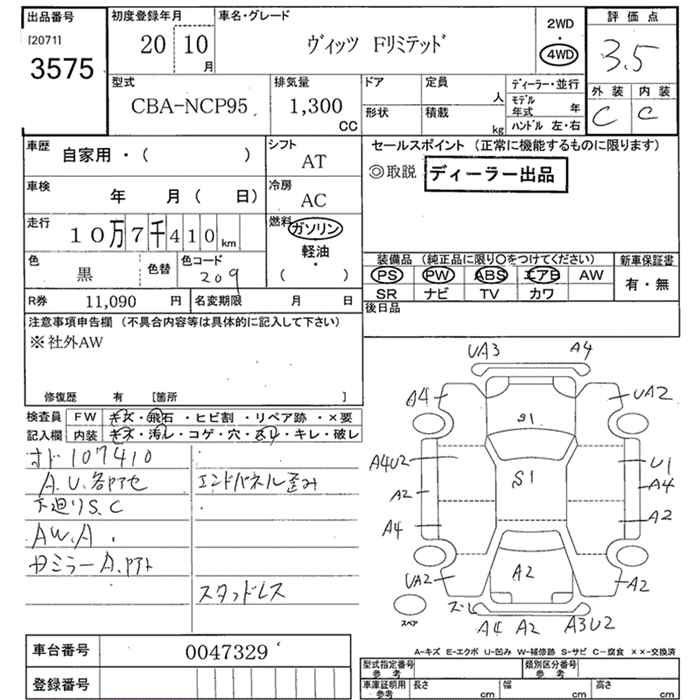 出品番号 初度登録年月 車名・グレード 2WD 評価点
[2071] 20 10 ヴィッツ Fリミテッド 4WD 3.5
3575 月
型式 排気量 ドア 定員 ディーラー・並行 外装 内装
CBA-NCP95 1,300 人 モデル年式 年 C C
CC 形状 積載 kg ハンドル 左・右
車歴 自家用・( ) シフト AT セールスポイント (正常に機能するものに限ります)
車検 年 月 ( 日) 冷房 AC ◎取説 ディーラー出品
走行 10万7千410km 燃料 ガソリン・軽油・( )
色 黒 色替 色コード 209 装備品 (純正品に限り○をつけてください) 新車保証書
PS PW ABS エアB AW 有・無
R券 11,090 円 名変期限 月 日 SR ナビ TV カワ
注意事項申告欄 (不具合内容等は具体的に記入して下さい) 後日品
※社外AW
修復歴 有 [箇所 ]
検査員 FW キズ・飛石・ヒビ割・リペア跡・×要
記入欄 内装 キズ・汚レ・コゲ・穴・スレ・キレ・破レ
オド107410
A.U.各部色 エンドパネル歪み
下廻りS.C
AW.A.
スタッドレス
UA3 A4
A4 UA2
S1
A4U2 S1 U1
A4
A2 A2
A4
UA2 A2 A2
ズレ
スペア A4 A2 A3U2
A-キズ E-エクボ U-凹み W-補修跡 S-サビ C-腐食 ××-交換済
車台番号 0047329 型式指定番号 類別区分番号
参考 参考
登録番号 車庫証明用 長さ 幅 高さ
参考 cm cm cm